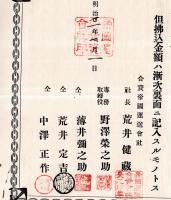 但拂込金額ハ漸次裏面ニ記入スルモノトス
明治
月
一日
合資帝國運送會社
社長 荒井健藏
専務取締役 野澤榮之助
仝 薄井彌之助
仝 荒井定吉
仝 中澤正作